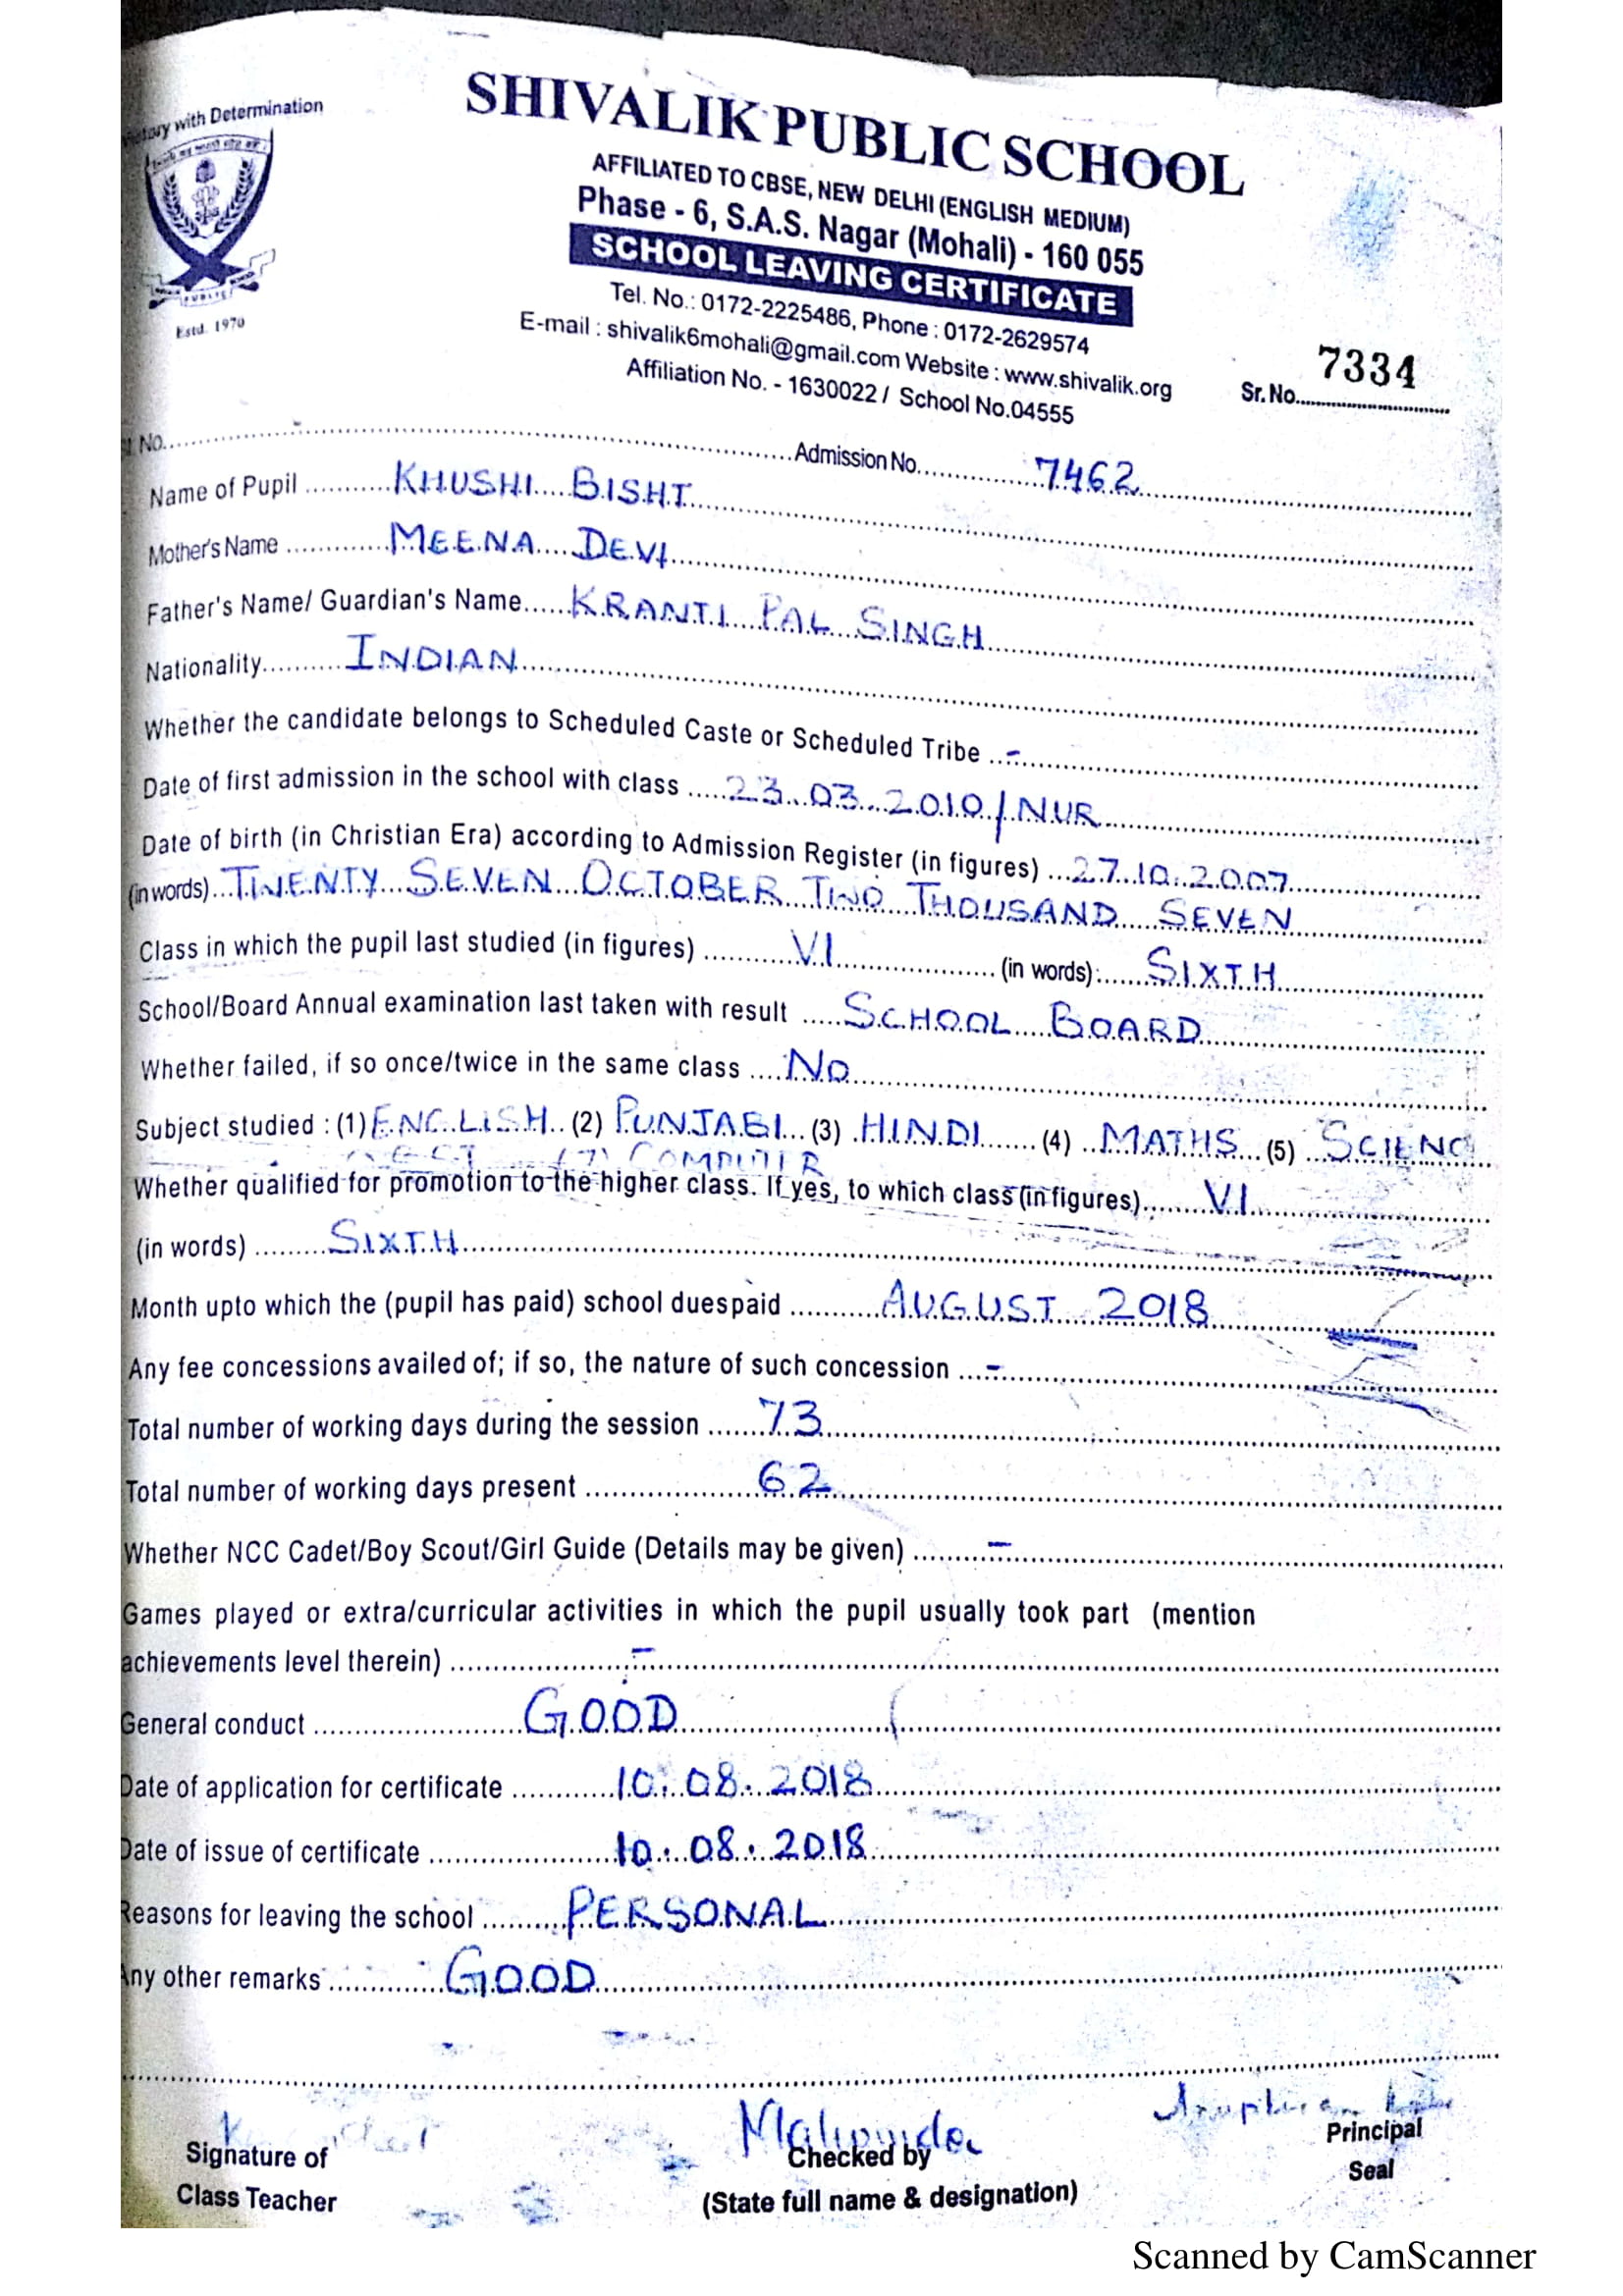 with Determination
Estd. 1970
SHIVALIK PUBLIC SCHOOL
AFFILIATED TO CBSE, NEW DELHI (ENGLISH MEDIUM)
Phase - 6, S.A.S. Nagar (Mohali) - 160 055
SCHOOL LEAVING CERTIFICATE
Tel. No.: 0172-2225486, Phone : 0172-2629574
E-mail : shivalik6mohali@gmail.com Website : www.shivalik.org
Affiliation No. - 1630022 / School No.04555
Sr. No. 7334
No. Admission No. 7462
Name of Pupil KHUSHI BISHT
Mother's Name MEENA DEVI
Father's Name/ Guardian's Name KRANTI PAL SINGH
Nationality INDIAN
Whether the candidate belongs to Scheduled Caste or Scheduled Tribe -
Date of first admission in the school with class 23.03.2010/NUR
Date of birth (in Christian Era) according to Admission Register (in figures) 27.10.2007
(in words) TWENTY SEVEN OCTOBER TWO THOUSAND SEVEN
Class in which the pupil last studied (in figures) VI (in words): SIXTH
School/Board Annual examination last taken with result SCHOOL BOARD
Whether failed, if so once/twice in the same class NO
Subject studied : (1) ENGLISH (2) PUNJABI (3) HINDI (4) MATHS (5) SCIENC
(7) COMPUTER
Whether qualified for promotion to the higher class. If yes, to which class (in figures) VI
(in words) SIXTH
Month upto which the (pupil has paid) school duespaid AUGUST 2018
Any fee concessions availed of; if so, the nature of such concession -
Total number of working days during the session 73
Total number of working days present 62
Whether NCC Cadet/Boy Scout/Girl Guide (Details may be given) -
Games played or extra/curricular activities in which the pupil usually took part (mention
achievements level therein) -
General conduct GOOD
Date of application for certificate 10.08.2018
Date of issue of certificate 10.08.2018
Reasons for leaving the school PERSONAL
Any other remarks GOOD
Signature of
Class Teacher
Checked by
(State full name & designation)
Principal
Seal
Scanned by CamScanner